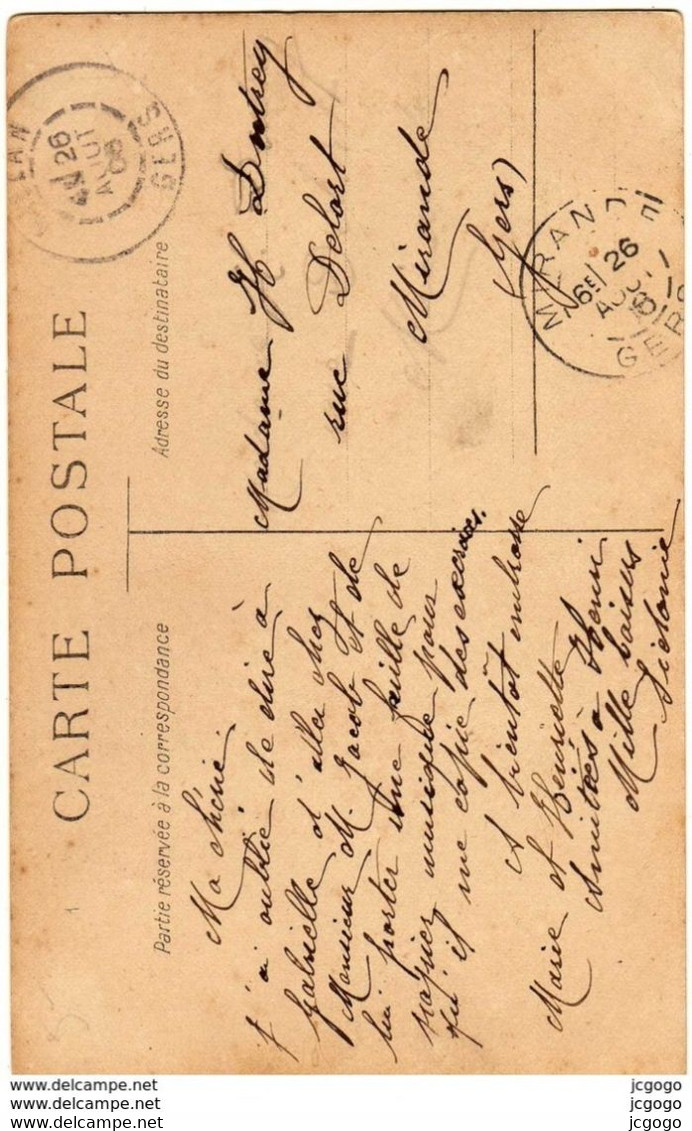 CARTE POSTALE
Partie réservée à la correspondance
Adresse du destinataire
Ma chérie,
J'ai oublié de dire à
Gabrielle d'aller chez
Monsieur M. Jacob et de
lui porter une feuille de
papier musique pour
qu'il me copie des exercices.
A bientôt embrasse
Marie et Henriette
Amitiés à Henri
Mille baisers
Madame H Dutrey
rue Delort
Mirande
Gers)
26
AOUT
08
GERS
MIRANDE
6E 26
AOUT
GERS
www.delcampe.net jcgogo
www.delcampe.net jcgogo
www.delcampe.net jcgogo